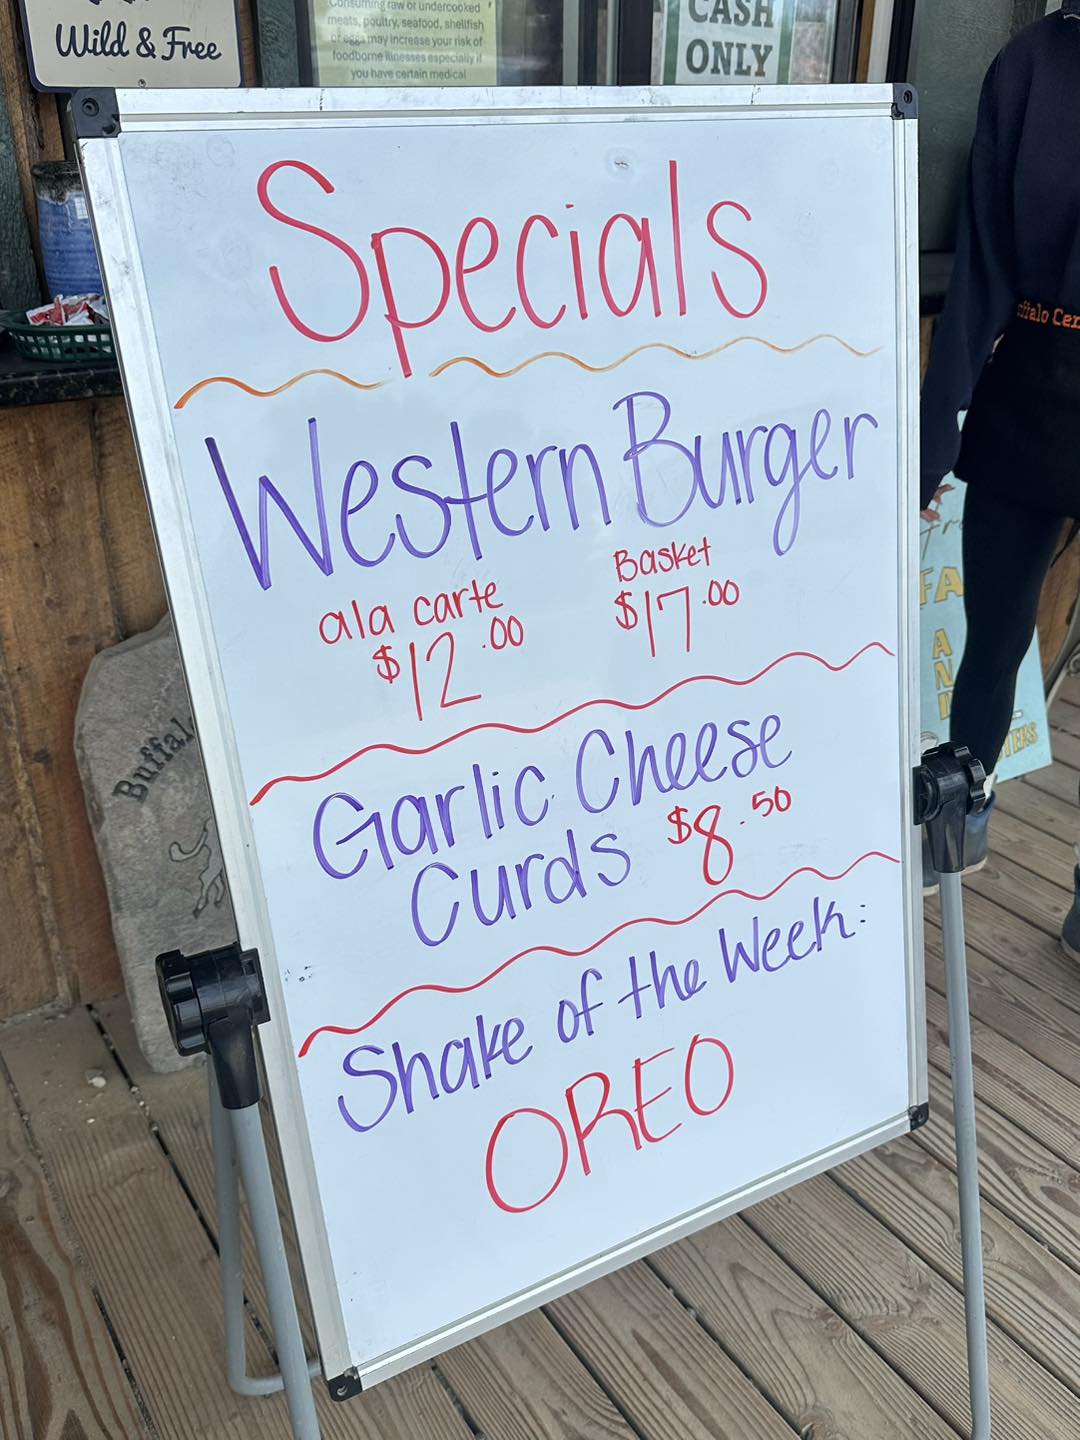 Wild & Free
Consuming raw or undercooked
meats, poultry, seafood, shellfish
or eggs may increase your risk of
foodborne illnesses especially if
you have certain medical
CASH
ONLY
Specials
Western Burger
ala carte
$12.00
Basket
$17.00
Garlic Cheese
Curds $8.50
Shake of the Week:
OREO
Buffal
ffalo Cer
FA
A
N